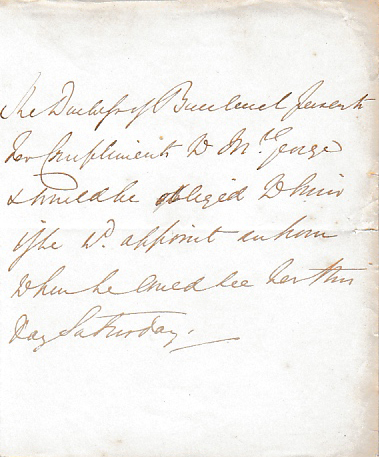 The Duchess of Buccleuch presents
her Compliments to Mr. George
& would be obliged to him
if he wd. appoint an hour
when he could see her this
Day Saturday.